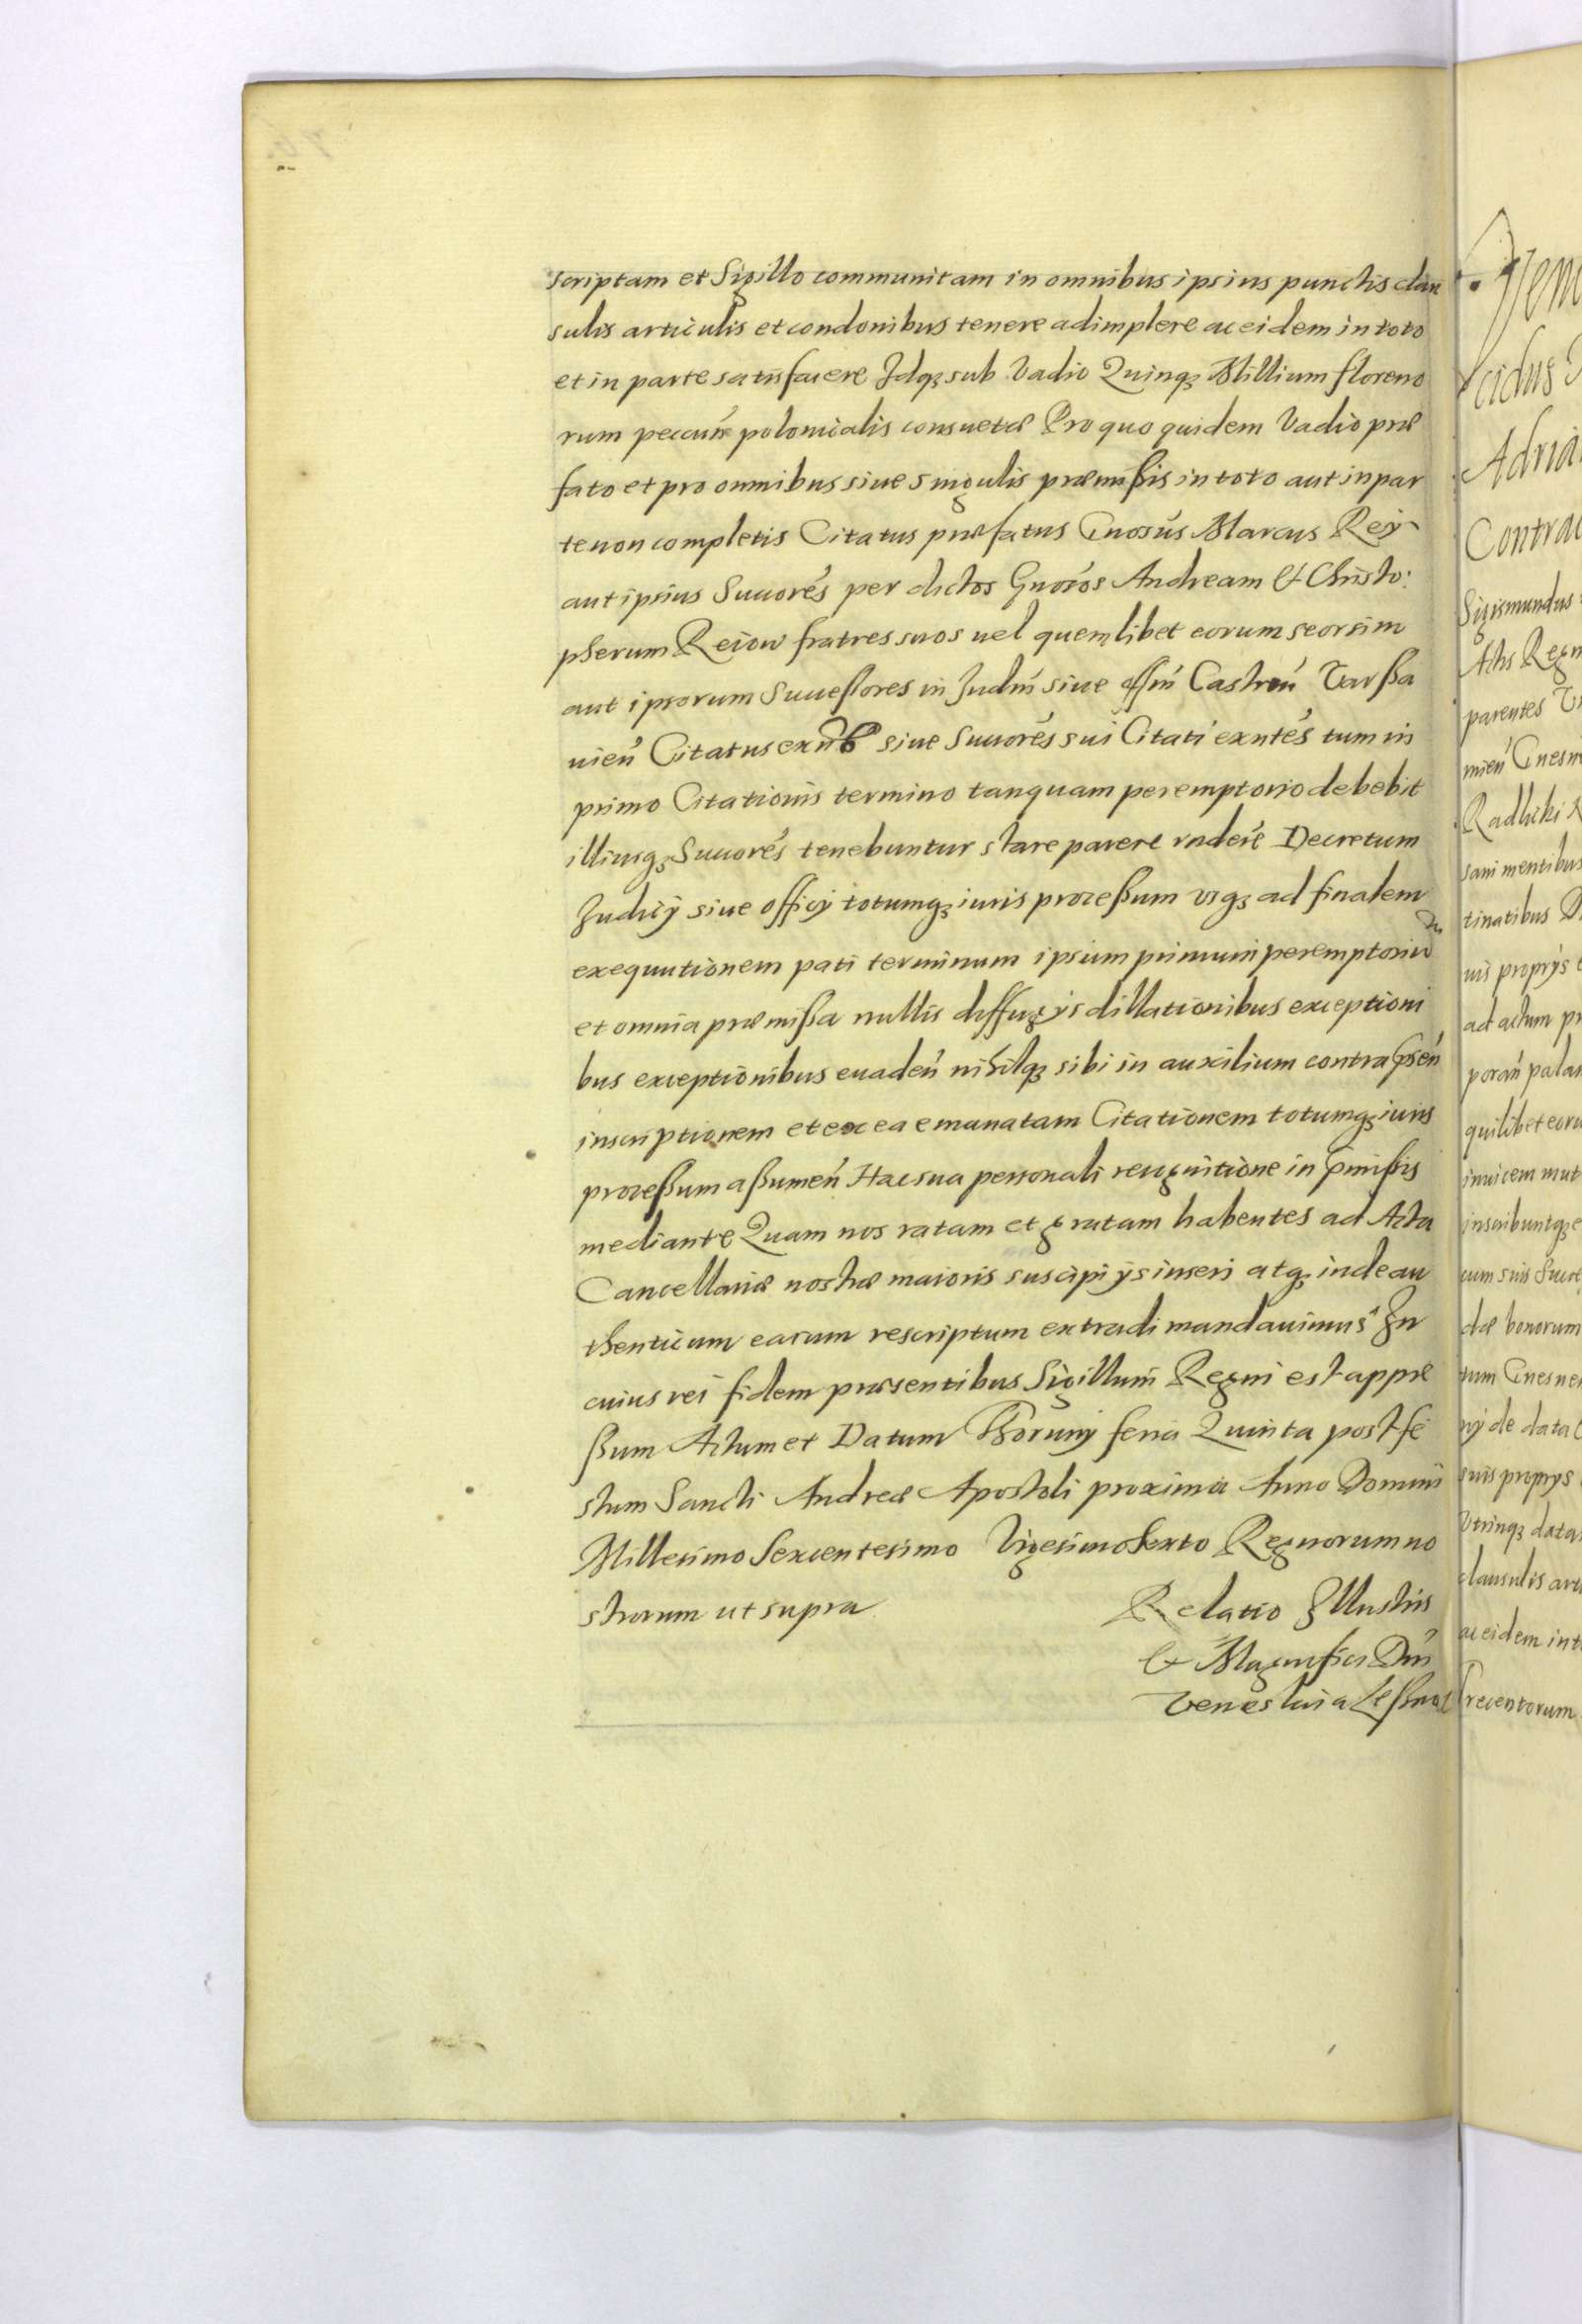 scriptam et Sigillo communitam in omnibus ipsius punctis clau
sulis articulis et condonibus tenere adimplere ac eidem in toto
et in parte satisfacere Idq3 sub Vadio Quinq3 Millium floreno
rum pecuniæ polonicalis consuetæ Pro quo quidem Vadio præ
fato et pro omnibus siue singulis præmißis in toto aut in par
te non completis Citatus præfatus Gnosus Marcus Rey
aut ipsius Succores per dictos Gnosos Andream & Christo:
pherum Reiow fratres suos uel quemlibet eorum seorsim
aut ipsorum Successores in Judm siue offm Castren Varßa
uien Citatus exns siue Succores sui Citati exntes tum in
primo Citationis termino tanquam peremptorio debebit
illiusq3 Succores tenebuntur stare parere rndere Decretum
Judicÿ siue officÿ totumq3 iuris proceßum vsq3 ad finalem
exequutionem pati terminum ipsum primum peremptoriu
et omnia præmißa nullis diffugÿs dillationibus exceptioni
bus exceptionibus euaden nihilq3 sibi in auxilium contra psen
inscriptionem et ex ea emanatam Citationem totumq3 iuris
proceßum aßumen Hac sua personali recognitione in pmißis
mediante Quam nos ratam et gratam habentes ad Acta
Cancellariæ nostræ maioris suscipi ÿs inseri atq3 inde au
thenticum earum rescriptum extradi mandauimus In
cuius rei fidem præsentibus Sigillum Regni est appræ
ßum Actum et Datum Thorunÿ feria Quinta post fe
stum Sancti Andreæ Apostoli proxima Anno Domini
Millesimo Sexcentesimo Vigesimo Sexto Regnorum no
strorum ut supra
Relatio Illustris
& Magnifici Dni
Venceslai a Leßno
Adria
Contrac
Sigismundus
Actis Regn
parentes
mien Gnesn
Radlicki
sani mentibus
tinatibus
uis proprÿs
ad actum pr
poran palam
quilibet eoru
inuicem mut
inscribuntq3 e
cum suis Succe
dæ bonorum
tum Gnesnen
nÿ de data
suis proprÿs
Vtrinq3 data
clausulis art
ac eidem int
trecentorum